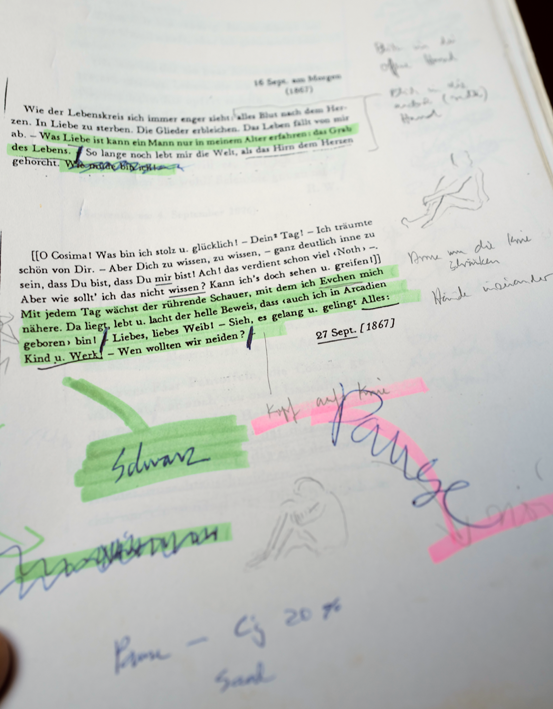 16 Sept. am Morgen
(1867)
Wie der Lebenskreis sich immer enger zieht: alles Blut nach dem Her-
zen. In Liebe zu sterben. Die Glieder erbleichen. Das Leben fällt von mir
ab. – Was Liebe ist kann ein Mann nur in meinem Alter erfahren: das Grab
des Lebens. / So lange noch lebt mir die Welt, als das Hirn dem Herzen
gehorcht.
[[O Cosima! Was bin ich stolz u. glücklich! – Dein² Tag! – Ich träumte
schön von Dir. – Aber Dich zu wissen, zu wissen, – ganz deutlich inne zu
sein, dass Du bist, dass Du mir bist! Ach! das verdient schon viel ‹Noth› –.
Aber wie sollt' ich das nicht wissen? Kann ich's doch sehen u. greifen!]]
Mit jedem Tag wächst der rührende Schauer, mit dem ich Evchen mich
nähere. Da liegt, lebt u. lacht der helle Beweis, dass ‹auch ich in Arcadien
geboren› bin! / Liebes, liebes Weib! – Sieh, es gelang u. gelingt Alles:
Kind u. Werk/ – Wen wollten wir neiden? /
27 Sept. [1867]
Hand
Hand
Arme um die Knie
Hände ineinander
Kopf auf Knie
Pause
Schwarz
Pause – 20 %